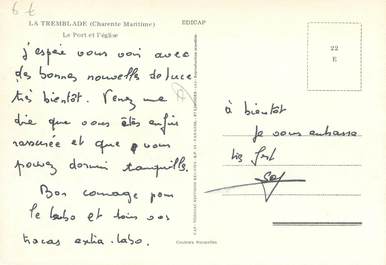 6 €
LA TREMBLADE (Charente Maritime)
Le Port et l'église
EDICAP
22
E
J'espère vous voir avec
des bonnes nouvelles de Luce
très bientôt. Venez me
dire que vous êtes enfin
rassurée et que vous
pouvez dormir tranquille.
Bon courage pour
le labo et tous vos
tracas extra-labo.
à bientôt
Je vous embrasse
très fort
Couleurs Naturelles